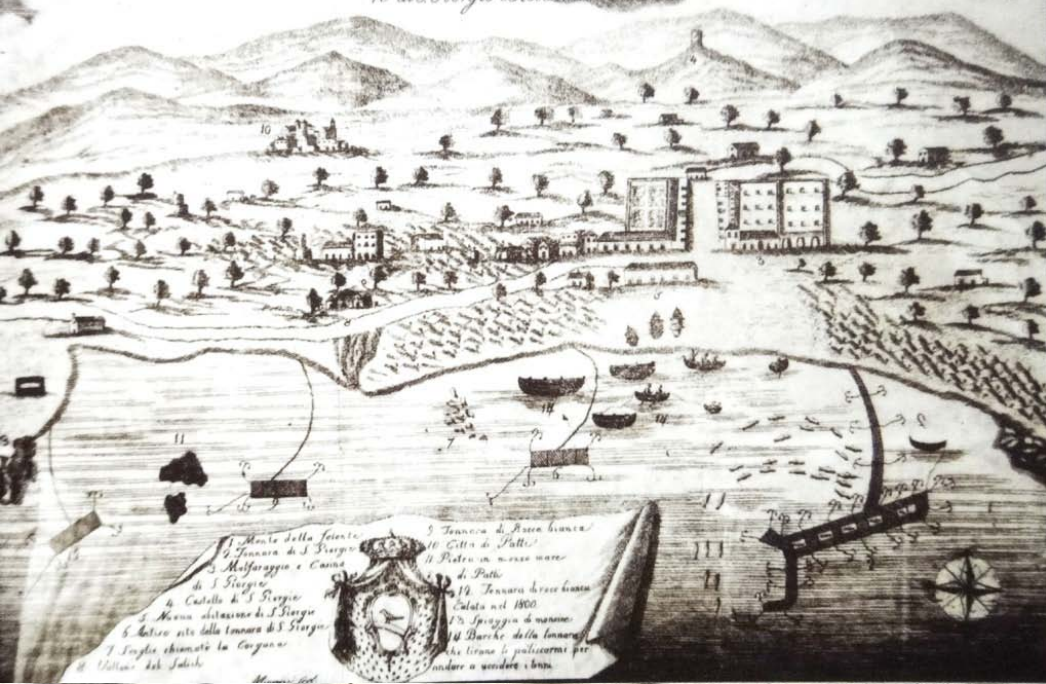 di S. Giorgio
1 Monte della
2 Tonnara di S. Giorgio
3 Malfaraggio e Casina
di S. Giorgio
4 Castello di S. Giorgio
5 Nuova abitazione di S. Giorgio
6 Antico sito della tonnara di S. Giorgio
7 Scoglio chiamato la
8 Vallone del
9 Tonnara di Roccabianca
10 Città di Patti
11 Pietra in mezzo mare
di Patti
12 Tonnara di roccabianca
Calata nel 1800
13 Spiaggia di
14 Barche della tonnara
che tirano li paliscarmi per
andare a uccidere i tonni
10
11
7
14
14
5
3
6
8
9